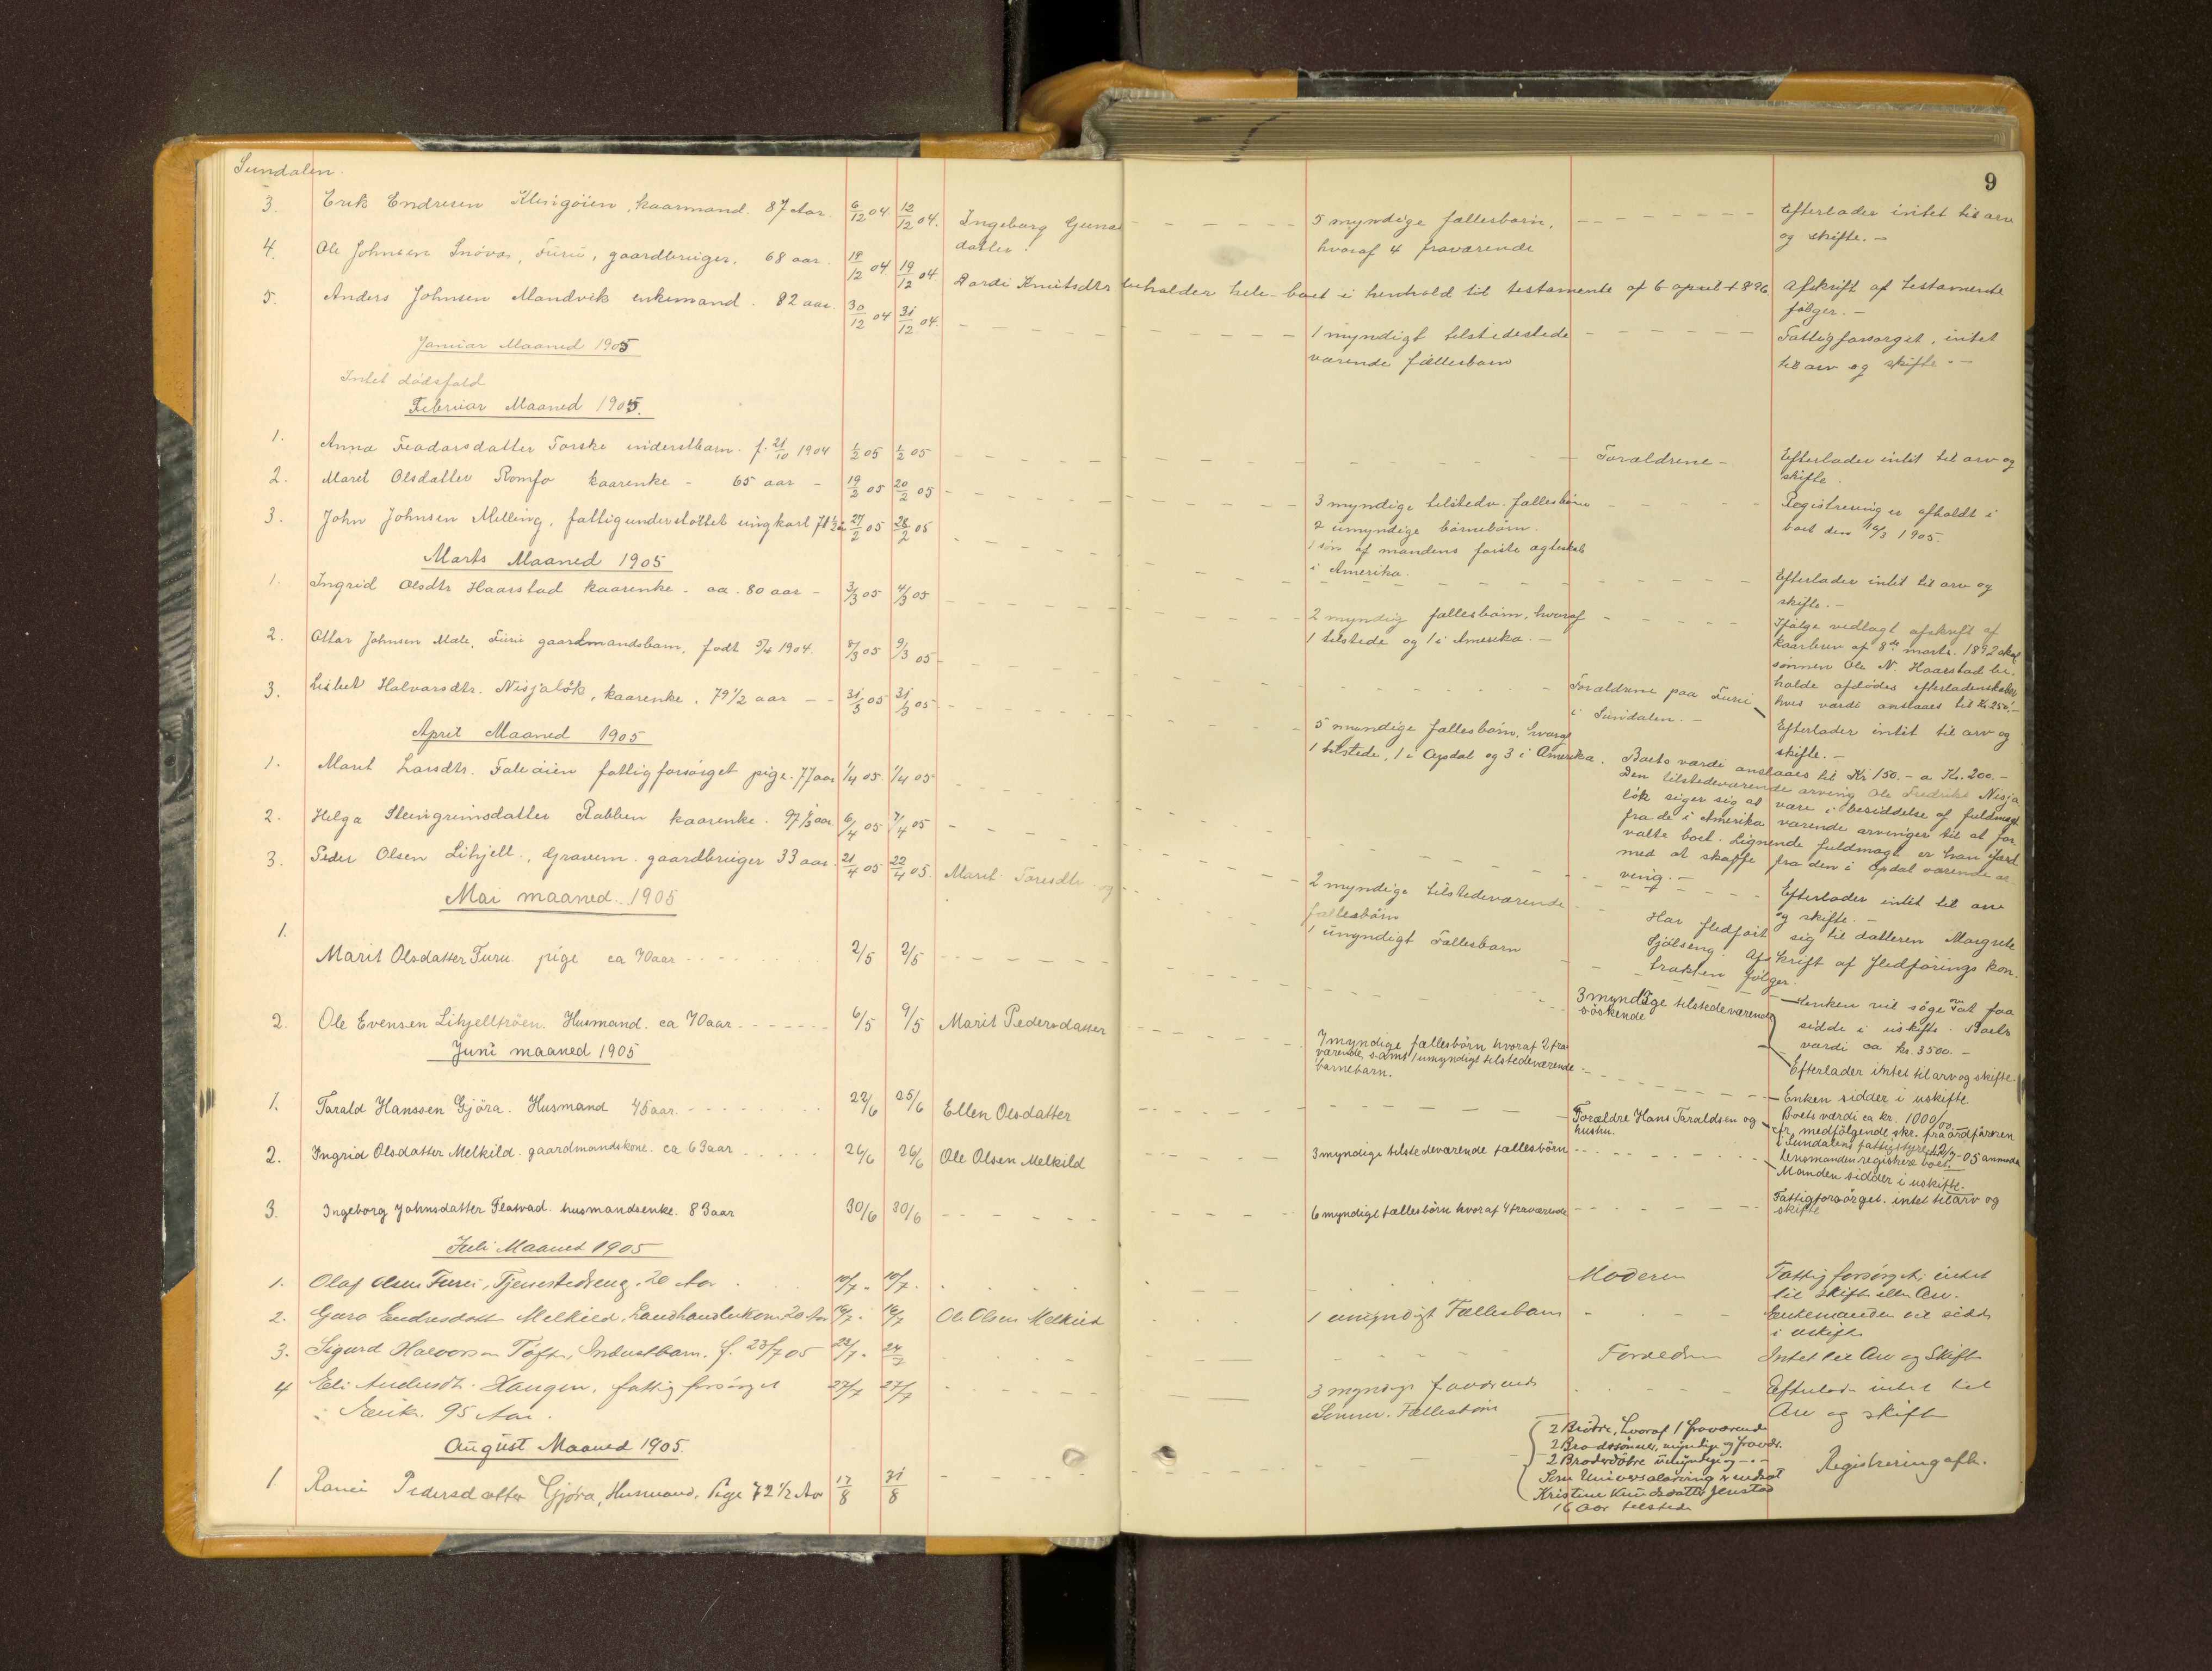 Sundalen.
9
3. Erik Endresen Klingöien, kaarmand. 87 Aar. 6/12 04. 12/12 04. Ingeborg Guns 5 myndige fællesbørn, Efterlader intet til arv
datter. hvoraf 4 fraværende og skifte. -
4. Ole Johnsen Snövas, Furu, gaardbruger. 68 aar. 19/12 04. 19/12 04. Dardi Knutsdtr beholder hele boet i henhold til testamente af 6 april 1896. Afskrift af testamente
følger. -
5. Anders Johnsen Mandvik enkemand. 82 aar. 30/12 04 31/12 04. 1 myndigt tilstedestede Fattigforsørget, intet
værende fællesbarn til arv og skifte. -
Januar Maaned 1905
Intet dödsfald
Februar Maaned 1905.
1. Anna Feodorsdatter Torske inderstbarn. f. 21/10 1904 1/2 05 1/2 05 Forældrene - Efterlader intet til arv og
skifte.
2. Maret Olsdatter Romfo kaarenke - 65 aar - 19/2 05 20/2 05 3 myndige tilstedv. fællesbørn Registrering er afholdt i
2 umyndige børnebørn. boet den 10/3 1905.
1 sön af mandens förste ægteskab
i Amerika.
3. John Johnsen Melling, fattigunderstöttet ungkarl 71 1/2 aar 27/2 05 28/2 05 Efterlader intet til arv og
skifte. -
Marts Maaned 1905
1. Ingrid Olsdtr Haarstad kaarenke - ca. 80 aar - 3/3 05 4/3 05 2 myndig fællesbörn, hvoraf Ifölge vedlagt afskrift af
1 tilstede og 1 i Amerika. - kaarbrev af 8de marts 1892 skal
sönnen Ole N. Haarstad be-
holde afdödes efterladenskaber
hvis værdi anslaaes til Kr. 250,-
2. Ottar Johnsen Mæle, Furu gaardmandsbarn, født 5/4 1904. 8/3 05 9/3 05 Forældrene paa Furu Efterlader intet til arv og
i Sundalen. - skifte. -
3. Lisbet Halvorsdtr. Nisjalök, kaarenke. 79 1/2 aar - 31/3 05 31/3 05 5 myndige fællesbörn, hvoraf
1 tilstede, 1 i Opdal og 3 i Amerika. Boets værdi anslaaes til Kr 150.- a Kr. 200.-
Den tilstedeværende arving Ole Fredriks Nisja
lök siger sig at være i besiddelse af fuldmagt
fra de i Amerika værende arvinger til at for
valte boet. Lignende fuldmagt er han ifærd
med at skaffe fra den i Opdal værende ar-
ving. -
April Maaned 1905
1. Marit Larsdtr. Faleöien fattigforsørget pige. 77 aar 1/4 05 1/4 05 Efterlader intet til arv
og skifte. -
2. Helga Steingrimsdatter Rabben kaarenke. 97 1/2 aar. 6/4 05 7/4 05 2 myndige tilstedeværende Har fledfört sig til datteren Margrete
fællesbörn Sjölseng. Afskrift af fledförings kon-
trakten följger.
3. Peder Olsen Lihjell, Gravem. gaardbruger 33 aar. 21/4 05 22/4 05. Marit Toresdtr. 1 umyndigt Fællesbarn Henken vil söge om at faa
sidde i uskifte. Boets
værdi ca kr. 3500. -
Mai maaned. 1905
1. Marit Olsdatter Furu. pige ca 70 aar 2/5 2/5 3 myndige tilstedeværende Efterlader intet til arv og skifte.
söskende
2. Ole Evensen Lihjelltröen. Husmand. ca 70 aar. 6/5 9/5 Marit Pedersdatter 7 myndige fællesbörn hvoraf 2 fra Enken sidder i uskifte.
værende, samt 1 umyndigt tilstedeværende Boets værdi ca kr. 1000/00.
barnebarn.
Juni maaned 1905
1. Tarald Hanssen Gjöra. Husmand 45 aar. 22/6 25/6 Ellen Olsdatter Forældre Hans Taraldsen og cfr. medfølgende skr. fra ordføreren
hustru. i Sundalens fattigstyre 21/7-05 anmeder
lensmanden registrere boet.
2. Ingrid Olsdatter Melkild. gaardmandskone. ca 63 aar 26/6 26/6 Ole Olsen Melkild 3 myndige tilstedeværende fællesbörn Manden sidder i uskifte.
3. Ingeborg Johnsdatter Flatvad. husmandsenke. 83 aar 30/6 30/6 6 myndige fællesbörn hvoraf 4 fraværende Fattigforsörget. intet til arv og
skifte
Juli Maaned 1905
1. Olaf Olsen Furu, Tjenestedreng. 20 Aar 10/7 10/7 Moderen Fattig forsörget; intet
til Skifte eller Arv.
2. Guro Endresdatt Melkild, Landhandlerkone 20 Aar 16/7 16/7 Ole Olsen Melkild 1 umyndigt Fællesbarn Enkemanden vil sidde
i uskifte
3. Sigurd Halvorsen Töfte, Inderstbarn. f. 23/7 05 23/7 24/7 Forældre Intet til Arv og Skifte
4 Eli Andersdt. Haugen, fattig forsörget 27/7 27/7 3 myndige fraværende Efterlader intet til
Enke. 95 Aar. Sönner. Fællesbörn Arv og skifte
August Maaned 1905.
1 Ranei Pedersdatter Gjöra, Husmand. Pige 72 1/2 Aar 17/8 31/8 2 Brödre, hvoraf 1 fraværende Registrering afh.
2 Brodersönner, myndige og fravær.
2 Broderdötre umyndige
Som Universalarving er indsat
Kristine Knudsdatter Jenstad
16 Aar tilstede